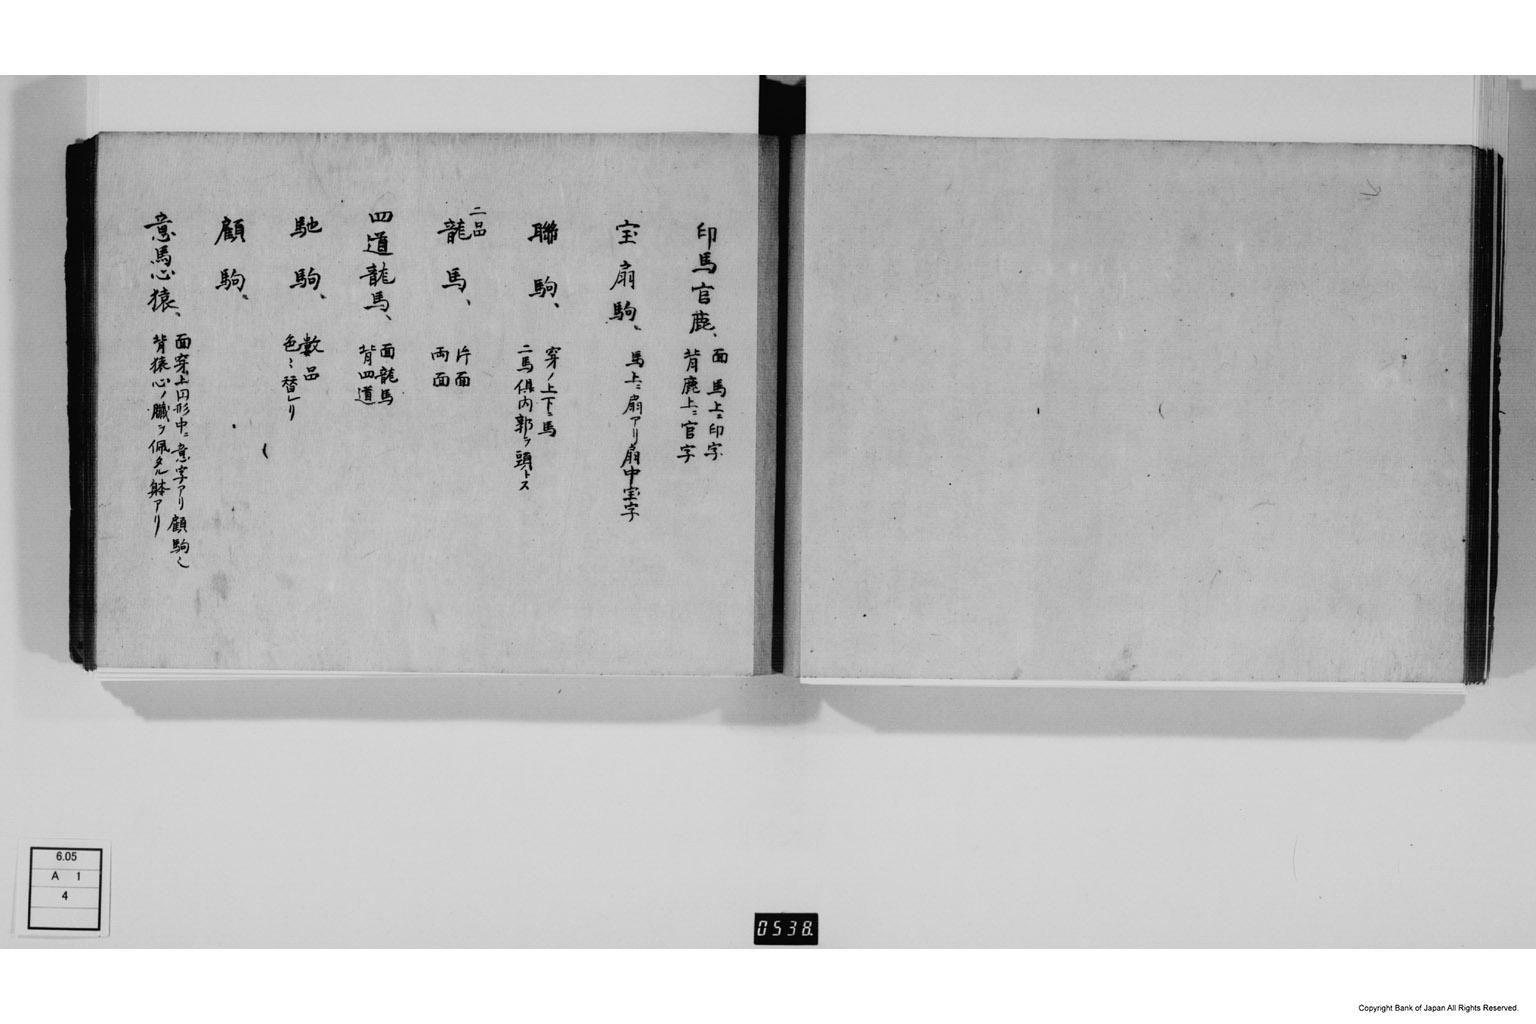 印馬官鹿、
面 馬上ニ印字
背鹿上ニ官字
宝扇駒、
馬上ニ扇アリ扇中宝字
聯駒、
穿ノ上下ニ馬
二馬倶内郭ヲ頭トス
二品
龍馬、
片面
両面
四道龍馬、
面龍馬
背四道
馳駒、
数品
色〻替レリ
顧駒、
意馬心猿、
面穿上円形中ニ意字アリ顧駒
背猿心ノ臓ヲ佩タル躰アリ
6.05
A 1
4
0538
Copyright Bank of Japan All Rights Reserved.